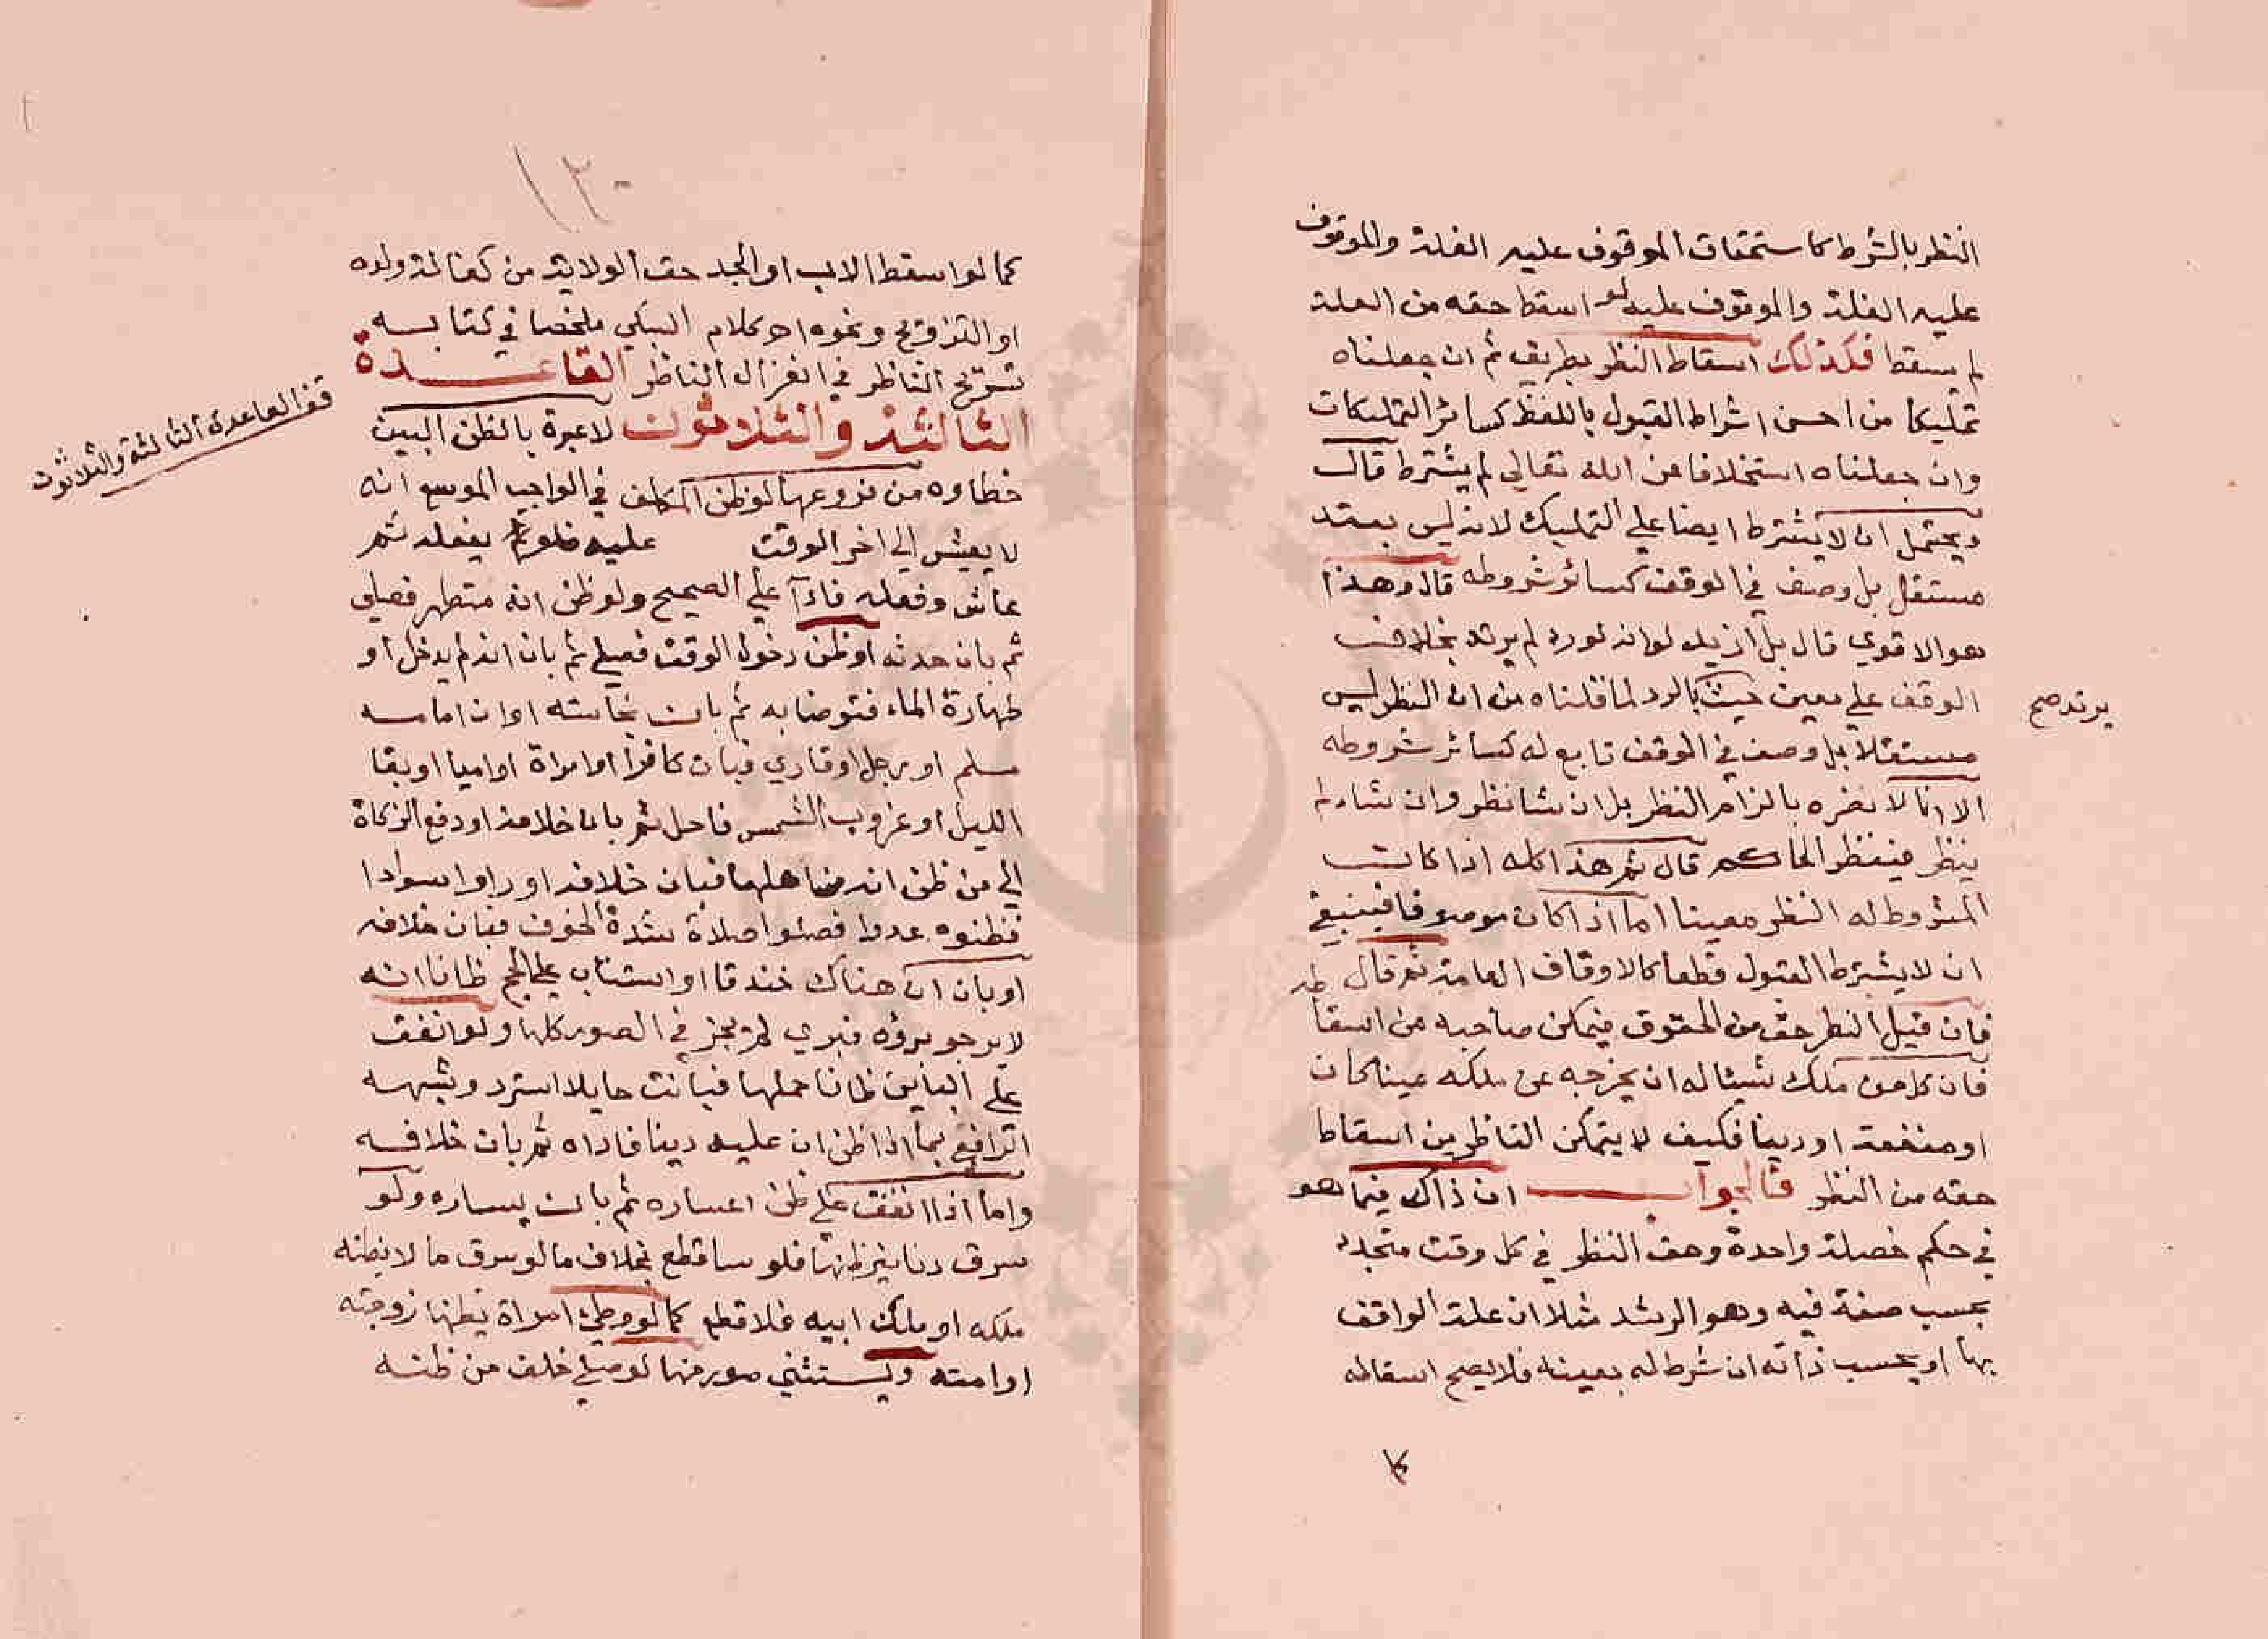 النظر بالشرط كاستحقاق الموقوف عليه الغلة والموقوف
عليه الغلة والموقوف عليه لو اسقط حقه من الغلة
لم يسقط فكذلك اسقاط النظر بطريق ثم ان جعلناه
تمليكا من احسن اشراط القبول باللفظ كسائر التمليكات
وان جعلناه استخلافا عن الله تعالى لم يشترط قال
ويحتمل ان لا يشترط ايضا على التمليك لانه ليس بعقد
مستقل بل وصف في الوقف كسائر شروطه قال وهذا
هو الاقوي قال بل ازيد لو انه لورد لم يرتد بخلاف
الوقف علي معين حيث بالرد لما قلناه من ان النظر ليس
يرتد صح
مستقلا بل وصف في الوقف تابع له كسائر شروطه
الا انا لا نضره بالزام النظر بل ان شا نظر وان شاء لم
ينظر فينظر الحاكم قال ثم هذا كله اذا كانت
المشروط له النظر معينا اما اذا كان موصوفا فينبغي
ان لا يشترط القبول قطعا كالاوقاف العامة ثم قال
فان قيل النظر حق من الحقوق فيمكن صاحبه من اسقا طه
فان كل من ملك شيئا له ان يخرجه عن ملكه عينا كان
او منفعة او دينا فكيف لا يتمكن الناظر من اسقاط
حقه من النظر فالجواب ان ذاك فيما هو
في حكم خصلة واحدة وحق النظر في كل وقت متجدد
بحسب صفة فيه وهو الرشد مثلا ان علقه الواقف
بها او بحسب ذاته ان شرط له بعينه فلا يصح اسقاطه
كما
١٢٠
كما لو اسقط الاب او الجد حق الولاية من كفالة ولده
او التزويج ونحوه اه كلام السبكي ملخصا في كتابه
تسريح الناظر في انعزال الناظر القاعدة
الثالثة والثلاثون لا عبرة بالظن البين
قف القاعدة الثالثة والثلاثون
خطاوه من فروعها لو ظن المكلف في الواجب الموسع انه
لا يعيش الي اخر الوقت عليه فلو لم يفعله ثم
عاش وفعله فاداً علي الصحيح ولو ظن انه متطهر فصلي
ثم بان حدثه او ظن دخول الوقت فصلي ثم بان انه لم يدخل او
طهارة الماء فتوضا به ثم بان نجاسته او ان امامه
مسلم او رجل او قاري فبان كافرا او امراة او اميا او بقا
الليل او غروب الشمس فاكل ثم بان خلافه او دفع الزكاة
الي من ظن انه من اهلها فبان خلافه او راوا سوادا
فظنوه عدوا فصلوا صلاة شدة الخوف فبان خلافه
او بان ان هناك خندقا او استناب علي الحج ظانا انه
لا يرجو برؤه فبري لم يجز في الصور كلها ولو انفق
علي الباين ظانا حملها فبانت حايلا استرد وشبهه
الرافعي بما اذا ظن ان عليه دينا فاداه ثم بان خلافه
واما اذا انفق علي ظن اعساره ثم بان يساره ولو
سرق دنانير ظنها فلوسا قطع بخلاف ما لو سرق ما لا يظنه
ملكه او ملك ابيه فلا قطع كما لو وطي امراة يظنها زوجته
او امته ويستثني صور منها لو صلي خلف من ظنه